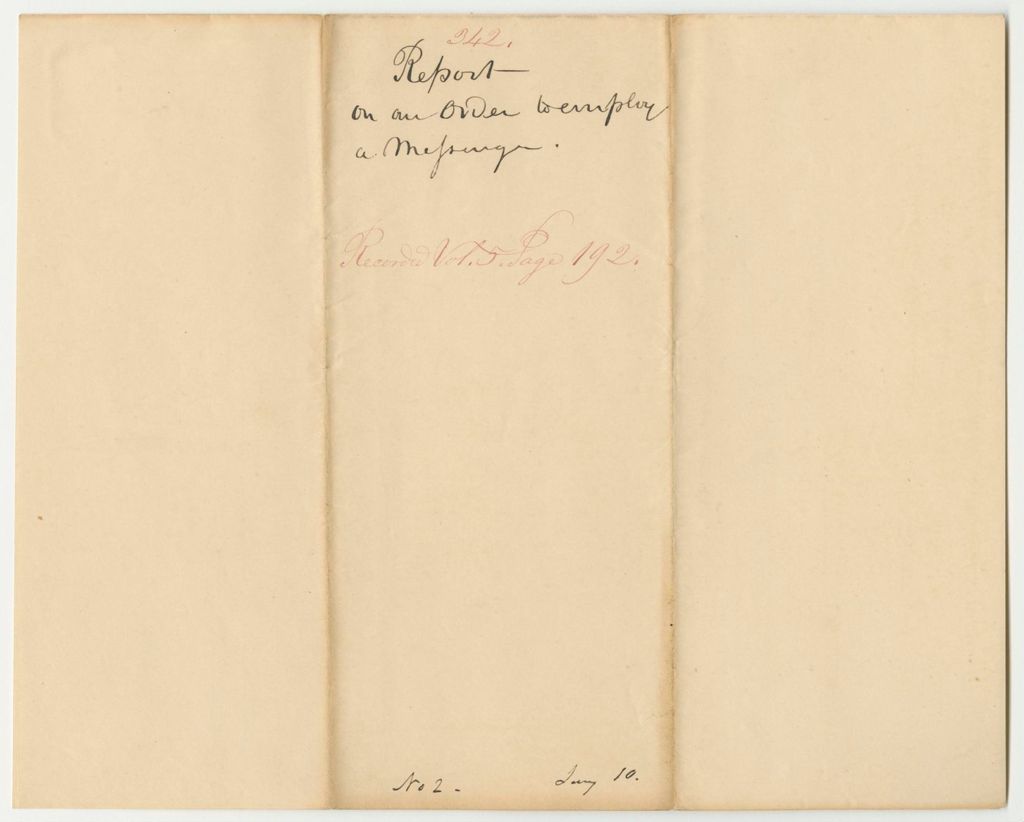 342.
Report
on an Order to employ
a Messenger.
Recorded Vol. 5. Page 192.
No 2. Jany 10.